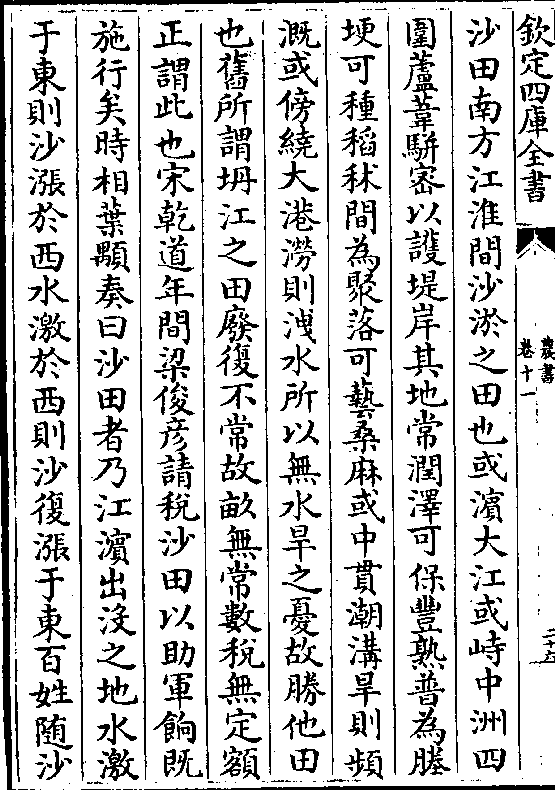 欽定四庫全書
農書
卷十一
沙田南方江淮間沙淤之田也或濵大江或峙中洲四
圍蘆葦騈密以護堤岸其地常潤澤可保豐熟普為塍
埂可種稻秫間為聚落可藝桑麻或中貫潮溝旱則頻
溉或傍繞大港澇則洩水所以無水旱之憂故勝他田
也舊所謂坍江之田廢復不常故畝無常數稅無定額
正謂此也宋乾道年間梁俊彦請稅沙田以助軍餉既
施行矣時相葉顒奏曰沙田者乃江濵出沒之地水激
于東則沙漲於西水激於西則沙復漲于東百姓随沙